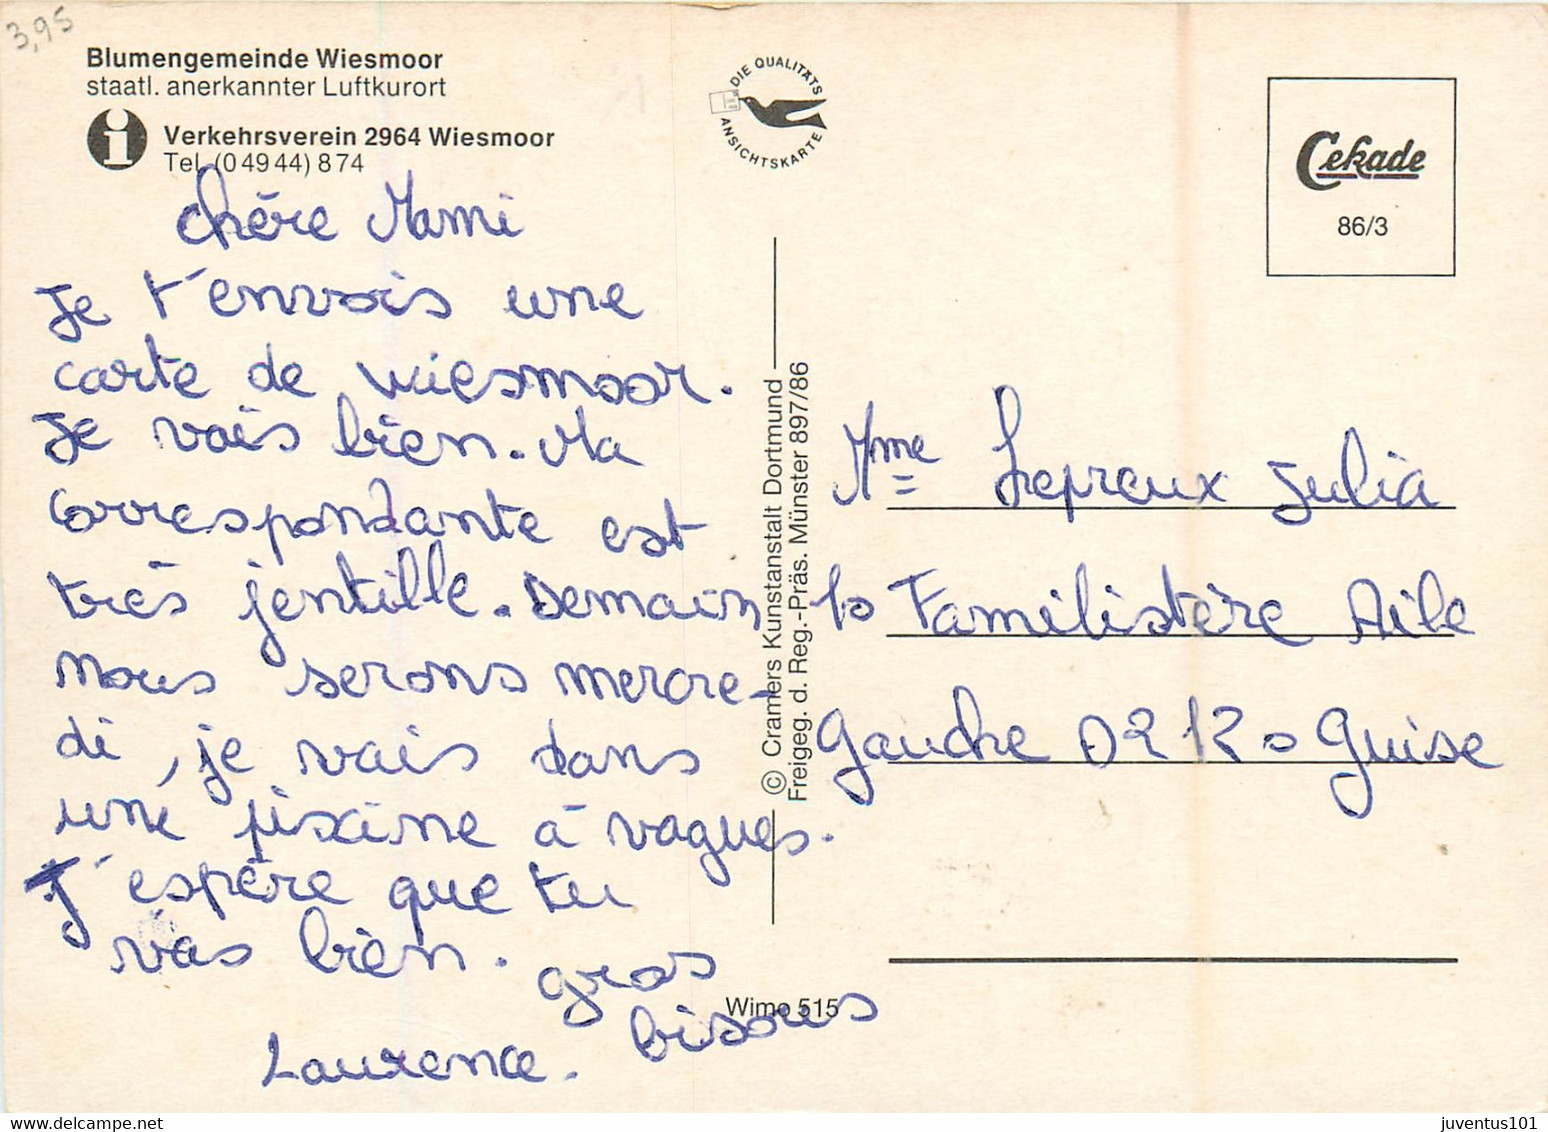 3,95
Blumengemeinde Wiesmoor
staatl. anerkannter Luftkurort
i Verkehrsverein 2964 Wiesmoor
Tel. (0 49 44) 8 74
DIE QUALITÄTS
ANSICHTSKARTE
Cekade
86/3
chère Mami
Je t'envois une
carte de wiesmoor.
Je vais bien. Ma
correspondante est
très jentille. Demain
nous serons mercre-
di, je vais dans
une piscine à vagues.
J'espère que tu
vas bien. gros
bisous
Laurence.
© Cramers Kunstanstalt Dortmund
Freigeg. d. Reg.-Präs. Münster 897/86
Wimo 515
Mme Lepreux Julia
Familistère Aile
Gauche 02120 Guise
juventus101